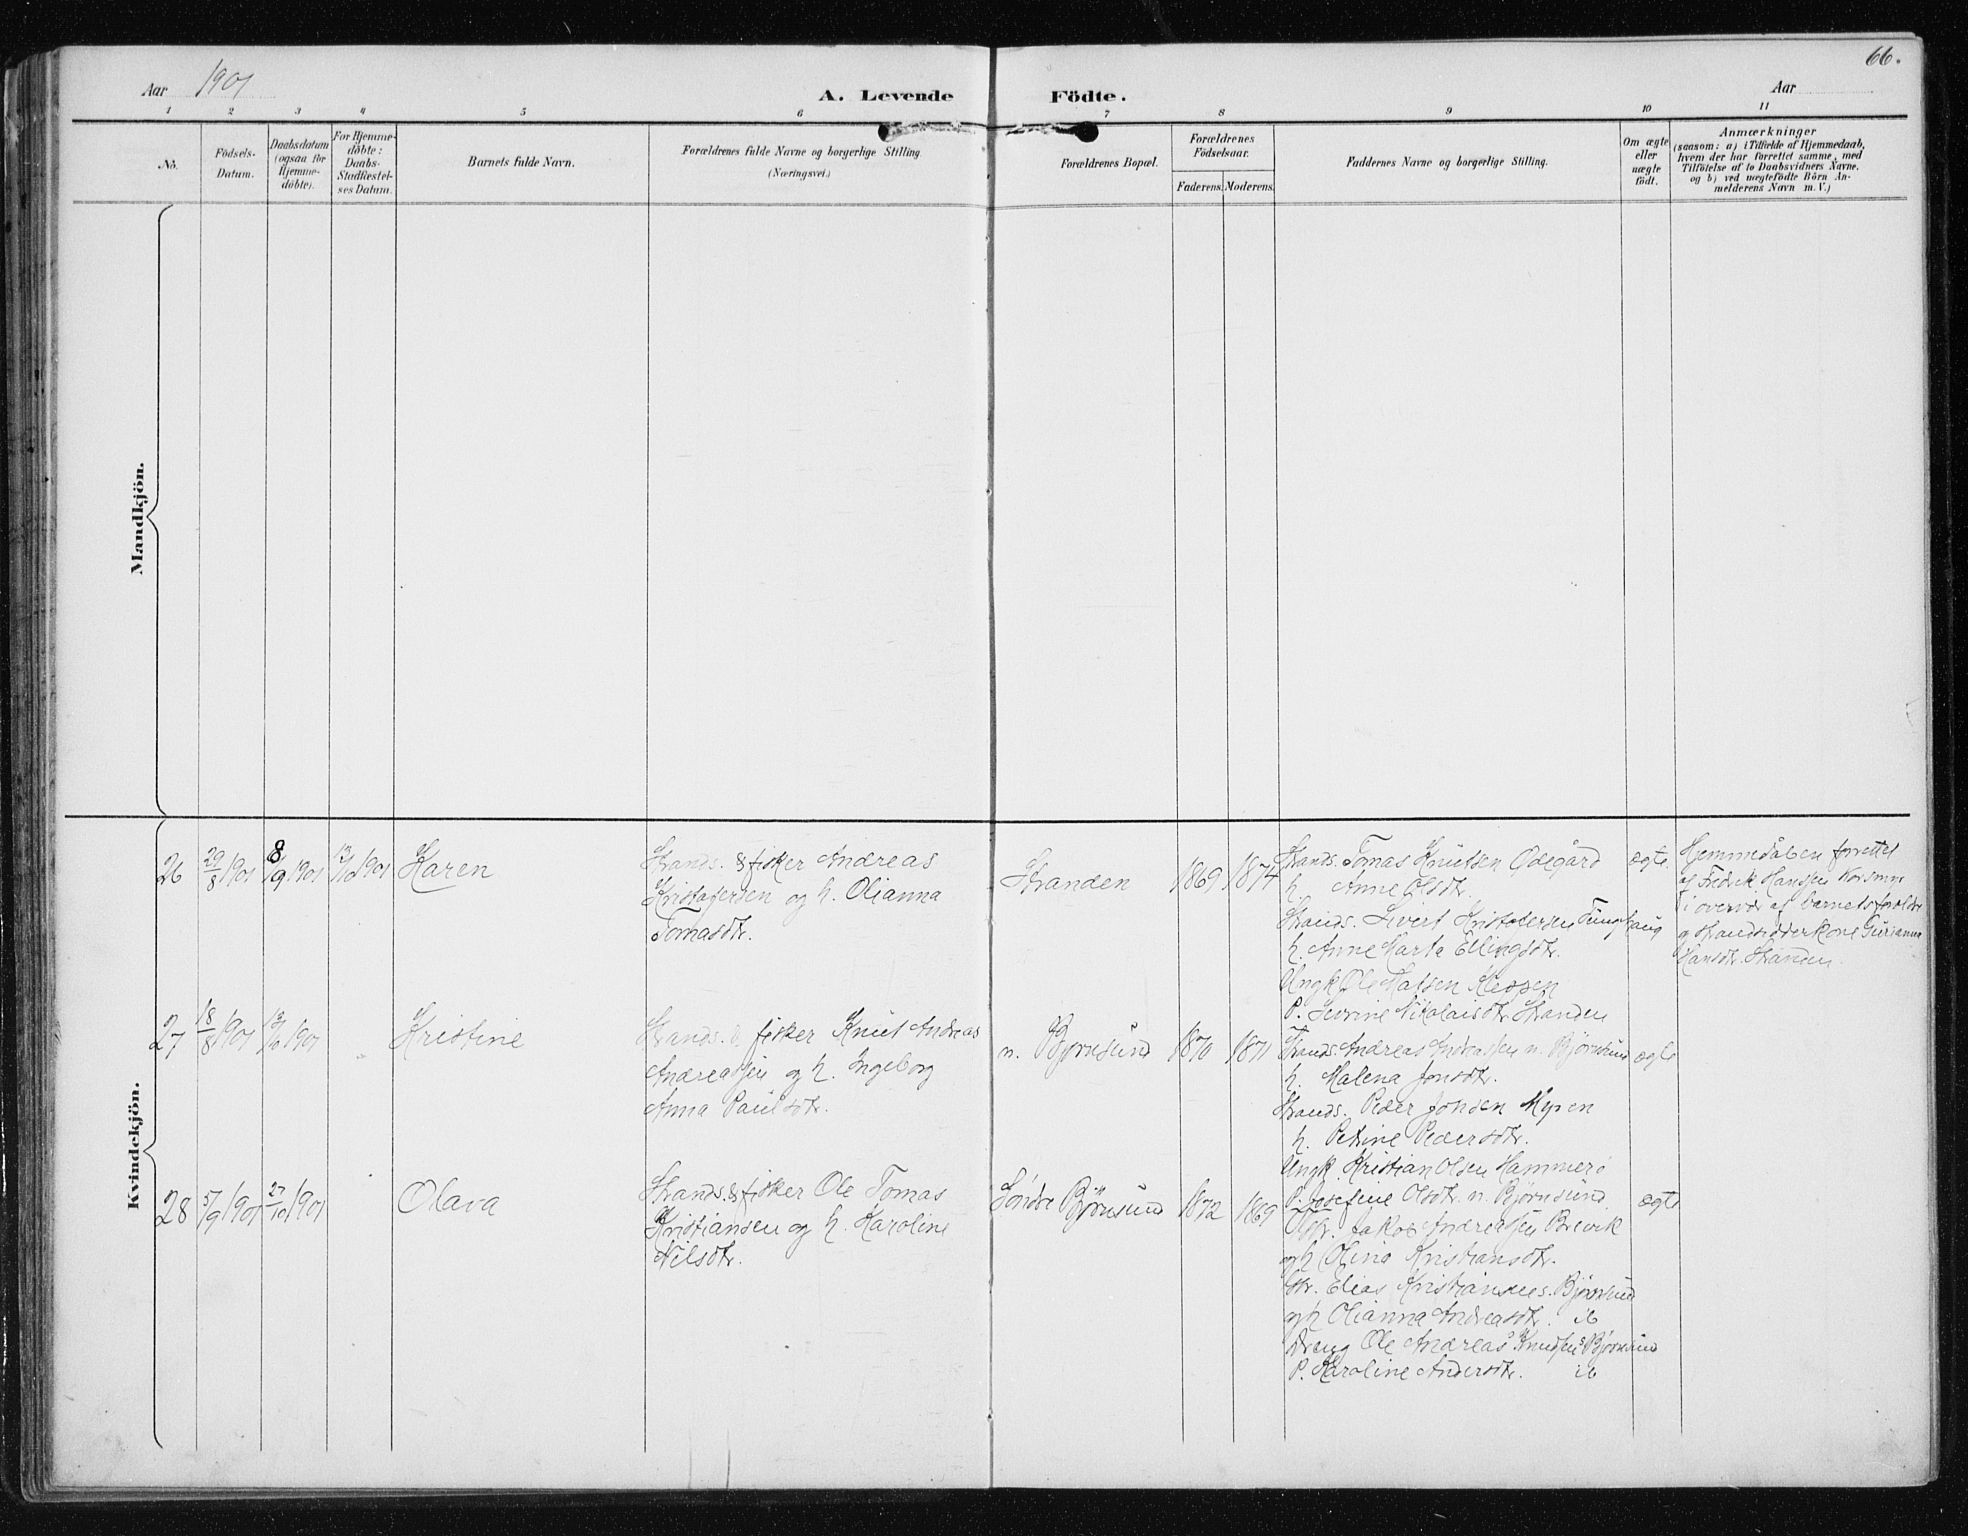 66.
Aar 1901
A. Levende Födte.
Aar
1 2 3 4 5 6 7 8 9 10 11
No.
Födsels-
Datum.
Daabsdatum
(ogsaa för
Hjemme-
döbte).
For Hjemme-
döbte:
Daabs-
Stadfæstel-
ses Datum.
Barnets fulde Navn.
Forældrenes fulde Navne og borgerlige Stilling.
(Næringsvei.)
Forældrenes Bopæl.
Forældrenes
Födselsaar.
Faderens. Moderens.
Faddernes Navne og borgerlige Stilling.
Om ægte
eller
uægte
födt.
Anmærkninger
(saasom: a) i Tilfælde af Hjemmedaab,
hvem der har forrettet samme, med
Tilföielse af to Daabsvidners Navne,
og b) ved uægtefödte Börn An-
melderens Navn m. V.)
Mandkjön.
Kvindekjön.
26 29/8 1901 8/9 1901 13/10 1901 Karen
Strands. & fisker Andreas
Kristofersen og h. Olianna
Tomasdtr.
Stranden 1869 1874
Strands. Tomas Knutsen Ødegård
h. Anne Olsdtr.
Strands. Sivert Kristofersen Tunghaug
h. Anne Marta Ellingsdtr.
Ungk Ole Matsen
P. Sevrine Nikolaisdtr. Stranden
ægte
Hjemmedåben forrettet
af Fredrik Hanssen
i overvær af barnets forældre
og strandsidderkone Gurianna
Hansdtr. Stranden.
27 18/8 1901 13/10 1901 Kristine
Strands. & fisker Knut Andreas
Andreassen og h. Ingeborg
Anna Paulsdtr.
n. Bjørnsund 1870 1871
Strands. Andreas Andreassen n. Bjørnsund
h. Malena Jonsdtr.
Strands. Peder Jonsen Myren
h. Petrine Pedersdtr.
Ungk. Kristian Olsen Hammerø
P. Josefine Olsdtr. n. Bjørnsund
ægte
28 5/9 1901 27/10 1901 Olava
Strands. & fisker Ole Tomas
Kristiansen og h. Karoline
Nilsdtr.
Søndre Bjørnsund 1872 1869
Jakob Andreassen Brevik
og h Olina Kristiansdtr.
Str. Elias Kristiansen s. Bjørnsund
og h Olianna Andreasdtr. ib
Dreng Ole Andreas Knudsen s Bjørnsund
P. Karoline Andersdtr. ib
ægte